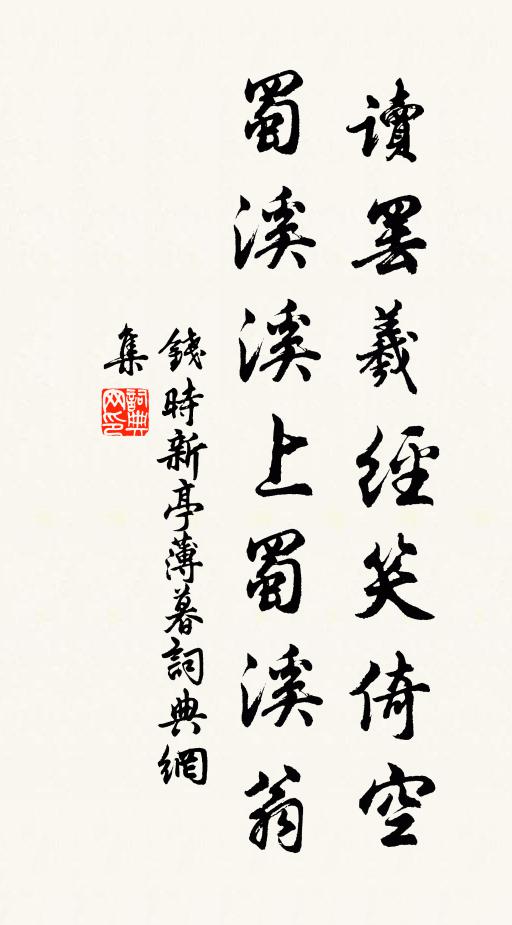 讀罷羲經笑倚空
蜀溪溪上蜀溪翁
錢時新亭薄暮詞典網
集
詞典
网印